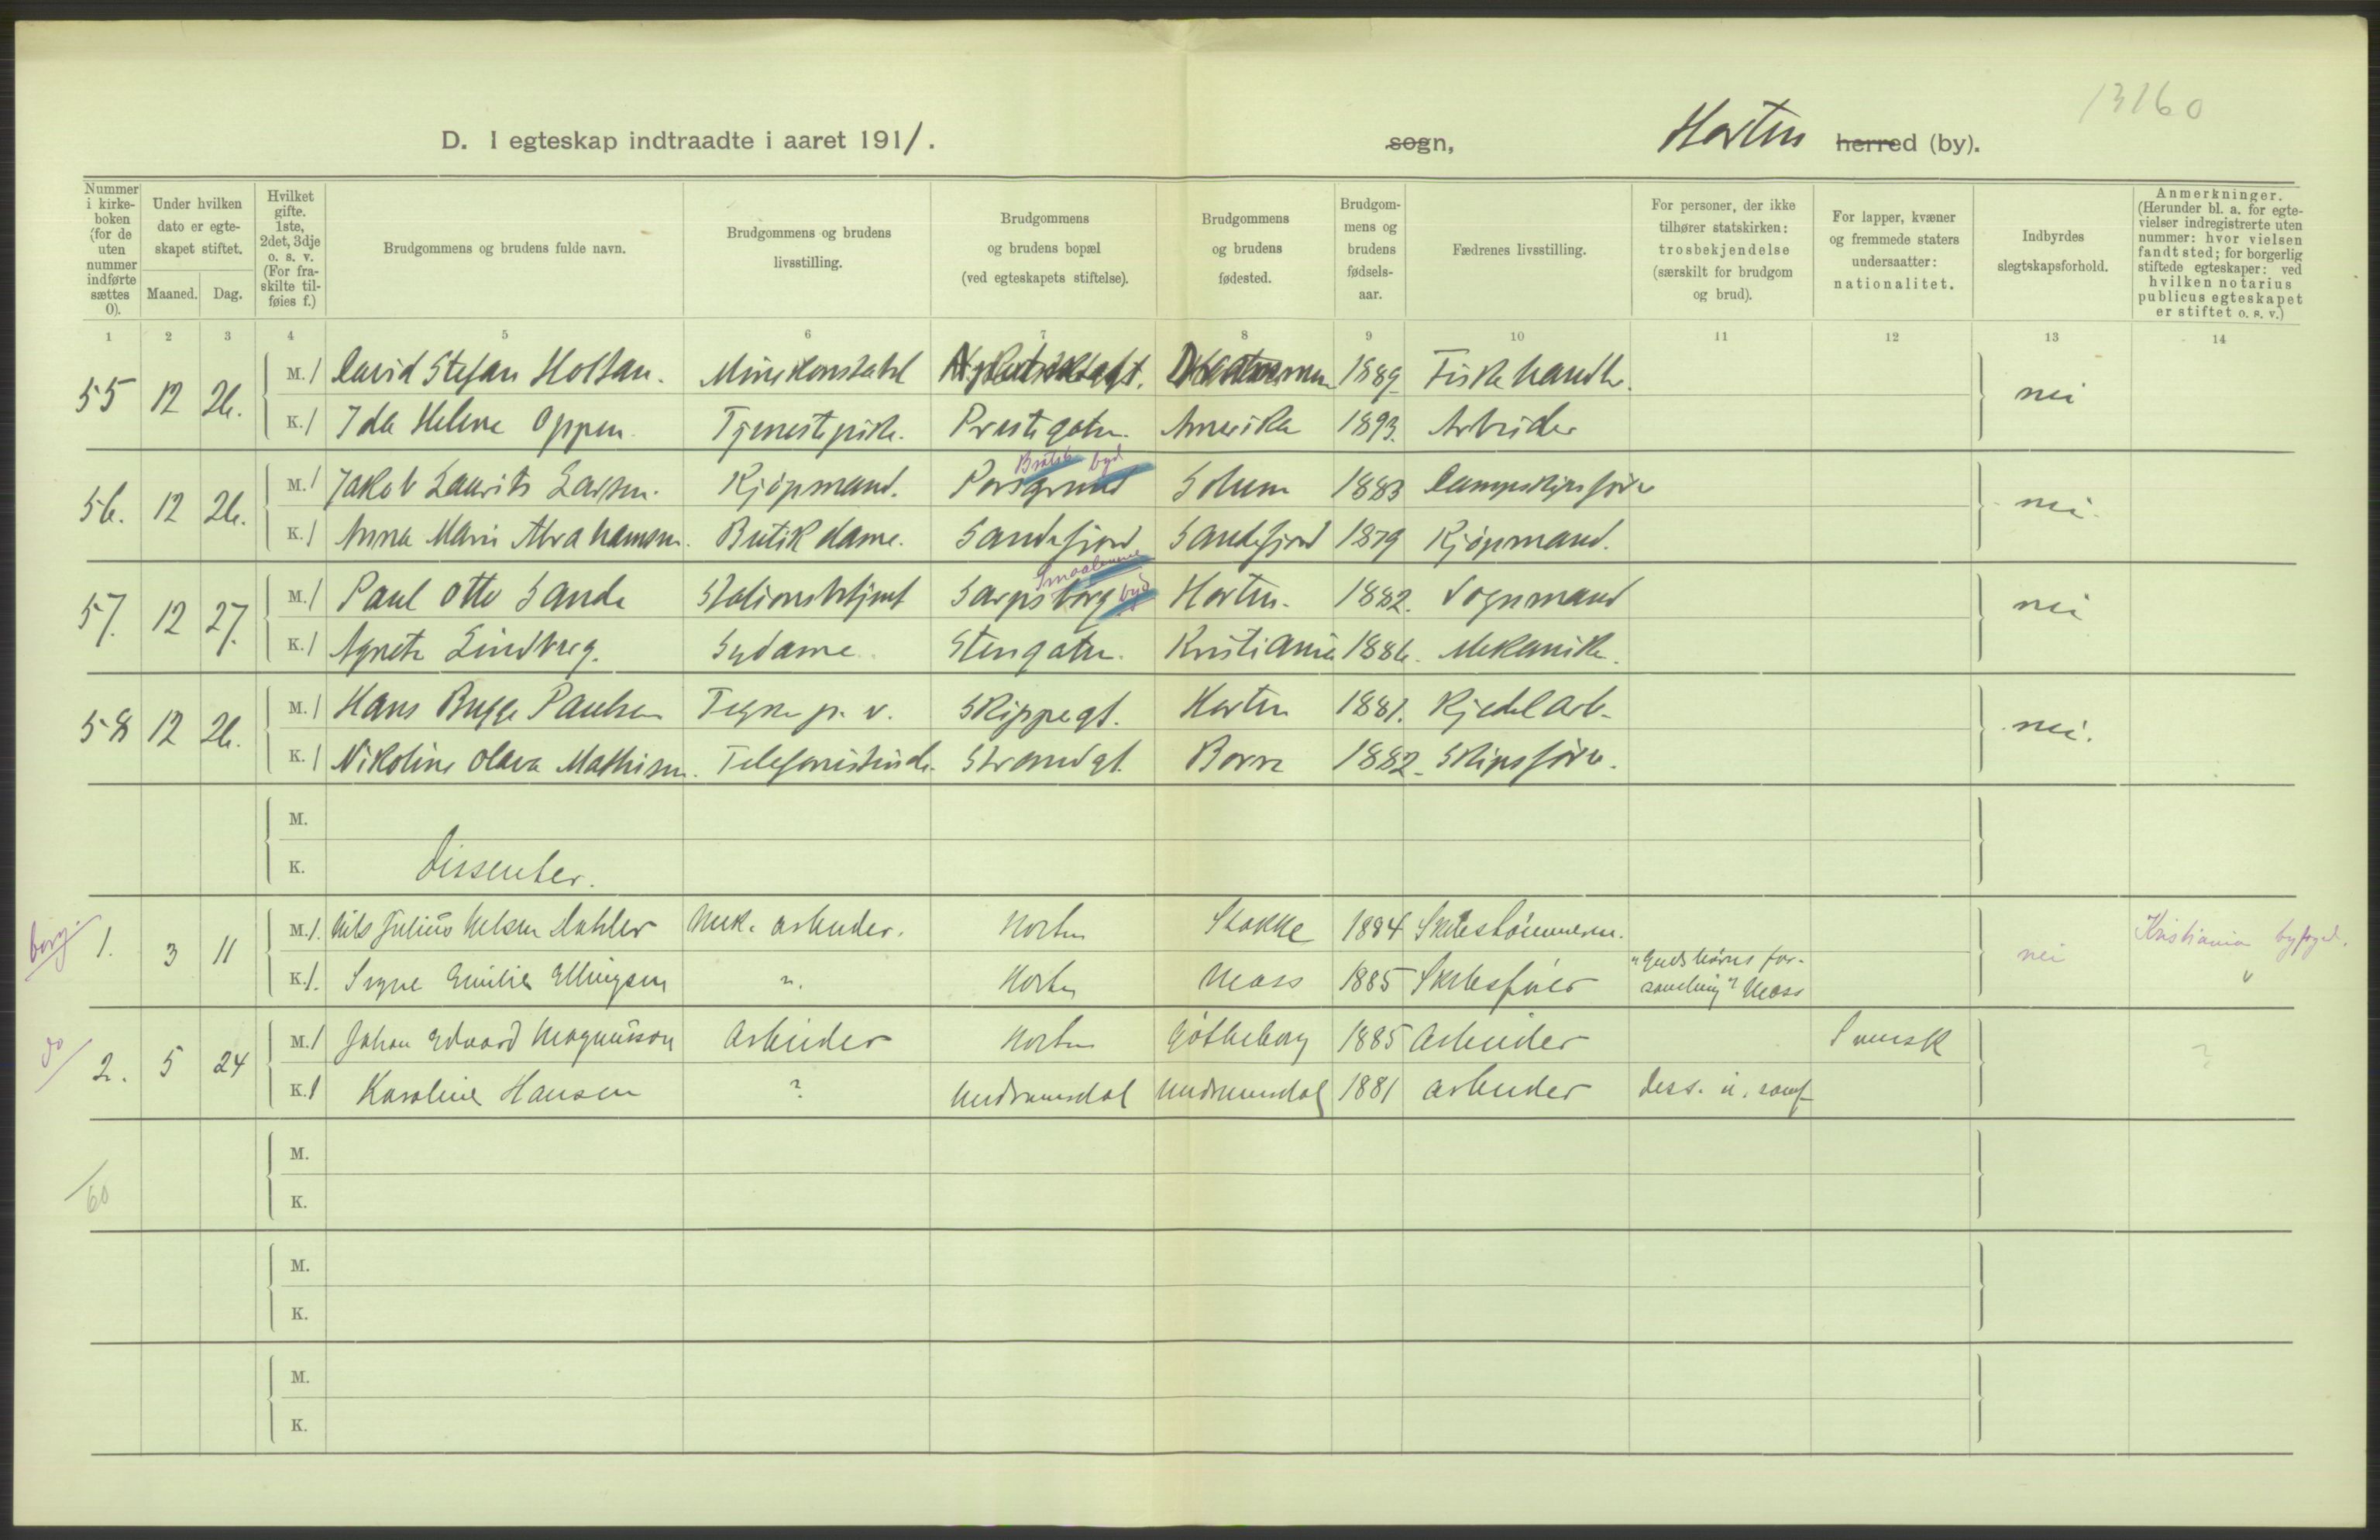 13160
D. I egteskap indtraadte i aaret 1911.
sogn,
Horten herred (by).
Nummer i kirke-boken (for de uten nummer indførte sættes 0).
Under hvilken dato er egte-skapet stiftet.
Maaned. Dag.
Hvilket gifte. 1ste, 2det, 3dje o. s. v. (For fra-skilte til-føies f.)
Brudgommens og brudens fulde navn.
Brudgommens og brudens livsstilling.
Brudgommens og brudens bopæl (ved egteskapets stiftelse).
Brudgommens og brudens fødested.
Brudgom-mens og brudens fødsels-aar.
Fædrenes livsstilling.
For personer, der ikke tilhører statskirken: trosbekjendelse (særskilt for brudgom og brud).
For lapper, kvæner og fremmede staters undersaatter: nationalitet.
Indbyrdes slegtskapsforhold.
Anmerkninger. (Herunder bl. a. for egte-vielser indregistrerte uten nummer: hvor vielsen fandt sted; for borgerlig stiftede egteskaper: ved hvilken notarius publicus egteskapet er stiftet o. s. v.)
1 2 3 4 5 6 7 8 9 10 11 12 13 14
55 12 26. M. 1 David Stefan Holtan. Minekonstabel 1889 Fiskehandler. nei
K. 1 Ida Helene Oppen Tjenestepike. Prestegaten. Amerika 1893. Arbeider
56. 12 26. M. 1 Jakob Laurits Larsen. Kjøpmand. Porsgrund Bratsb byd Solum 1883 Dampskipsfører nei.
K. 1 Anna Marie Abrahamsen. Butikdame. Sandefjord Sandefjord 1879 Kjøpmand.
57. 12 27. M. 1 Paul Otto Sande Stationsbetjent Sarpsborg Smaalenene byd Horten. 1882. Vognmand nei
K. 1 Agnete Lindberg. Sydame. Stengaten. Kristiania 1886. Mekaniker.
58 12 26. M. 1 Hans Bugge Paulsen Tegner p. v. Skippergt. Horten 1881. Kjedelarb. nei.
K. 1 Nikoline Olava Mathisen. Telefonistinde. Strandgt. Borre 1882. Skipsfører.
M.
K. Dissenter.
borg. 1. 3 11 M. 1. Nils Julius Nelsen Dahler Mek. arbeider. Horten Stokke 1884 Skibstømmerm. nei Kristiania byfogd.
K. 1. Signe Emilie Ellingsen ". Horten Moss 1885 Skibsfører "Guds børns for-
samling" Moss
do 2. 5 24 M. 1 Johan Edvard Magnusson Arbeider Horten Götheborg 1885 Arbeider Svensk ?
K. 1 Karoline Hansen ? Undrumsdal Undrumsdal 1881 arbeider Diss. u. samf.
60 M.
K.
M.
K.
M.
K.